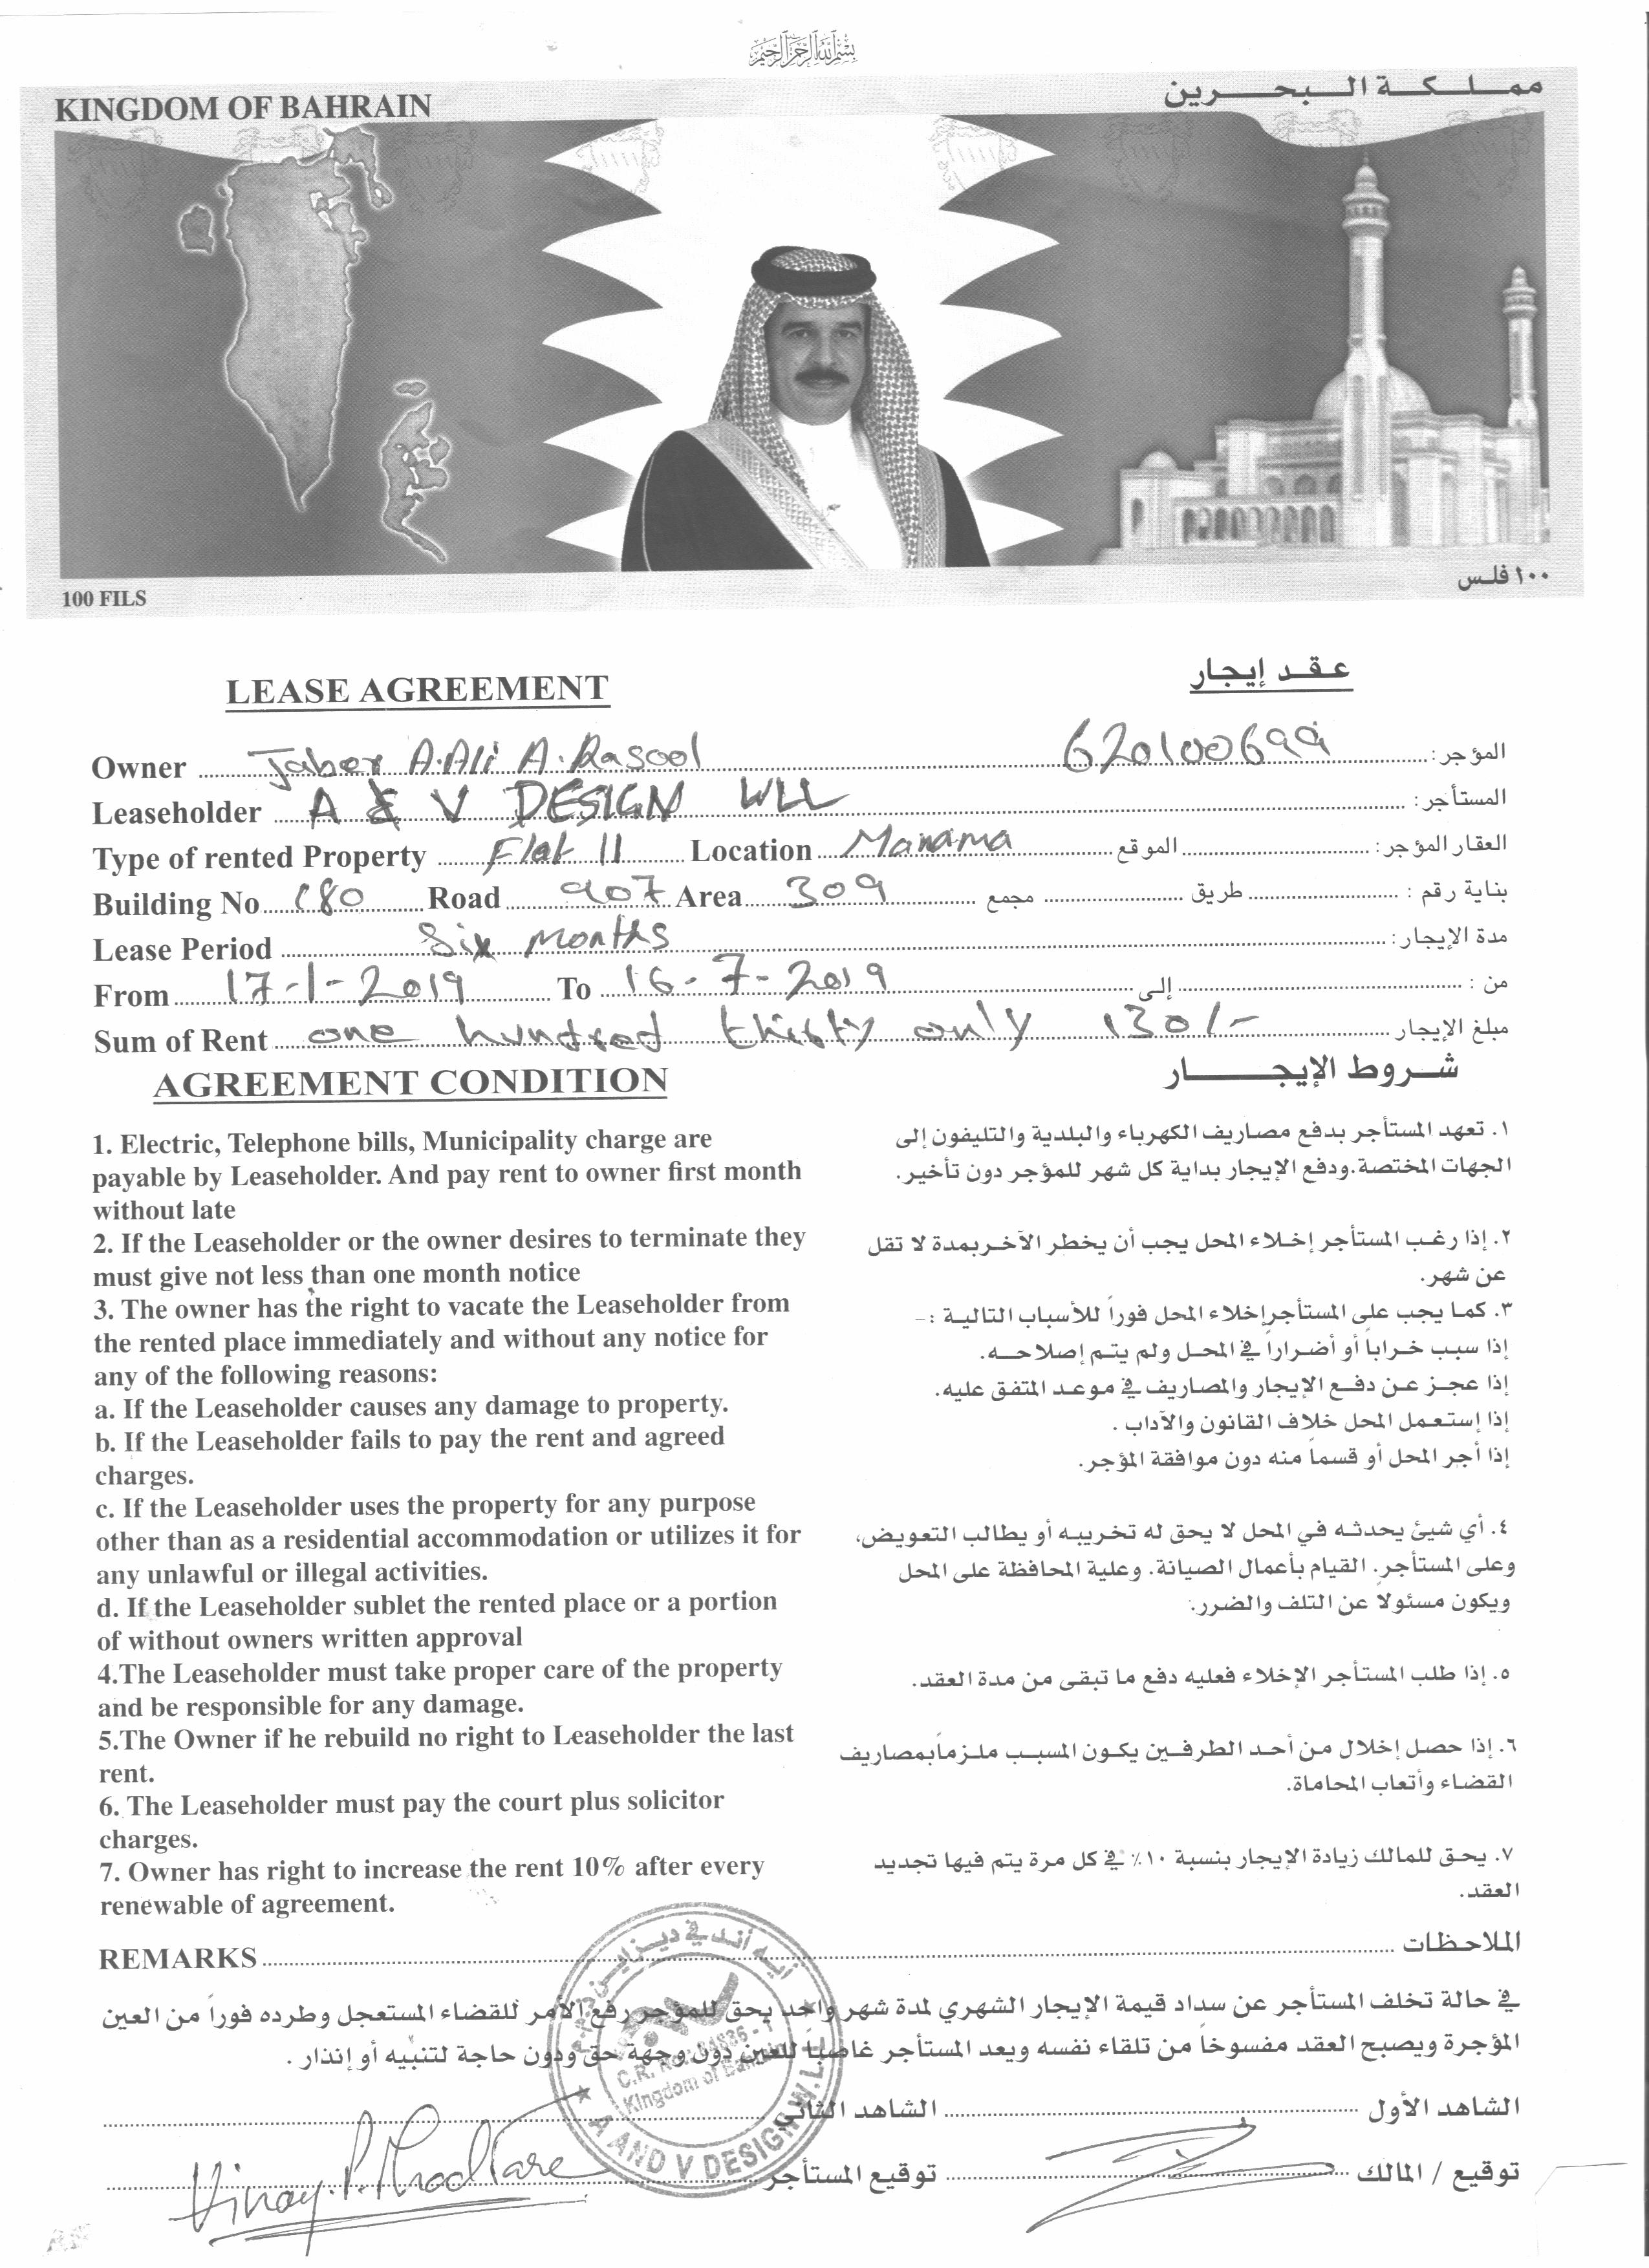 بسم الله الرحمن الرحيم
KINGDOM OF BAHRAIN
مملكة البحرين
100 FILS
١٠٠ فلس
LEASE AGREEMENT
عقد إيجار
Owner Jaber A.Ali A.Rasool 620100699 المؤجر:
Leaseholder A & V DESIGN WLL المستأجر:
Type of rented Property Flat 11 Location Manama الموقع العقار المؤجر:
Building No. 180 Road 907 Area 309 مجمع طريق بناية رقم :
Lease Period Six Months مدة الإيجار:
From 17-1-2019 To 16-7-2019 إلى من :
Sum of Rent one hundred thirty only 130/- مبلغ الإيجار
AGREEMENT CONDITION
شروط الإيجار
1. Electric, Telephone bills, Municipality charge are
payable by Leaseholder. And pay rent to owner first month
without late
2. If the Leaseholder or the owner desires to terminate they
must give not less than one month notice
3. The owner has the right to vacate the Leaseholder from
the rented place immediately and without any notice for
any of the following reasons:
a. If the Leaseholder causes any damage to property.
b. If the Leaseholder fails to pay the rent and agreed
charges.
c. If the Leaseholder uses the property for any purpose
other than as a residential accommodation or utilizes it for
any unlawful or illegal activities.
d. If the Leaseholder sublet the rented place or a portion
of without owners written approval
4.The Leaseholder must take proper care of the property
and be responsible for any damage.
5.The Owner if he rebuild no right to Leaseholder the last
rent.
6. The Leaseholder must pay the court plus solicitor
charges.
7. Owner has right to increase the rent 10% after every
renewable of agreement.
١. تعهد المستأجر بدفع مصاريف الكهرباء والبلدية والتليفون إلى
الجهات المختصة.ودفع الإيجار بداية كل شهر للمؤجر دون تأخير.
٢. إذا رغب المستأجر إخلاء المحل يجب أن يخطر الآخر بمدة لا تقل
عن شهر.
٣. كما يجب على المستأجر إخلاء المحل فوراً للأسباب التالية :-
إذا سبب خراباً أو أضراراً في المحل ولم يتم إصلاحه.
إذا عجز عن دفع الإيجار والمصاريف في موعد المتفق عليه.
إذا إستعمل المحل خلاف القانون والآداب .
إذا أجر المحل أو قسماً منه دون موافقة المؤجر.
٤. أي شيئ يحدثه في المحل لا يحق له تخريبه أو يطالب التعويض،
وعلى المستأجر. القيام بأعمال الصيانة. وعلية المحافظة على المحل
ويكون مسئولاً عن التلف والضرر.
٥. إذا طلب المستأجر الإخلاء فعليه دفع ما تبقى من مدة العقد.
٦. إذا حصل إخلال من أحد الطرفين يكون المسبب ملزماً بمصاريف
القضاء وأتعاب المحاماة.
٧. يحق للمالك زيادة الإيجار بنسبة ١٠٪ في كل مرة يتم فيها تجديد
العقد.
REMARKS الملاحظات
في حالة تخلف المستأجر عن سداد قيمة الإيجار الشهري لمدة شهر واحد يحق للمؤجر رفع الأمر للقضاء المستعجل وطرده فوراً من العين
المؤجرة ويصبح العقد مفسوخاً من تلقاء نفسه ويعد المستأجر غاصباً للعين دون وجهة حق ودون حاجة لتنبيه أو إنذار .
أيه أند في ديزاين ذ.م.م
C.R. No.
Kingdom of Bahrain
A AND V DESIGN W.L.L
الشاهد الأول الشاهد الثاني
توقيع / المالك توقيع المستأجر
Vinay.P.